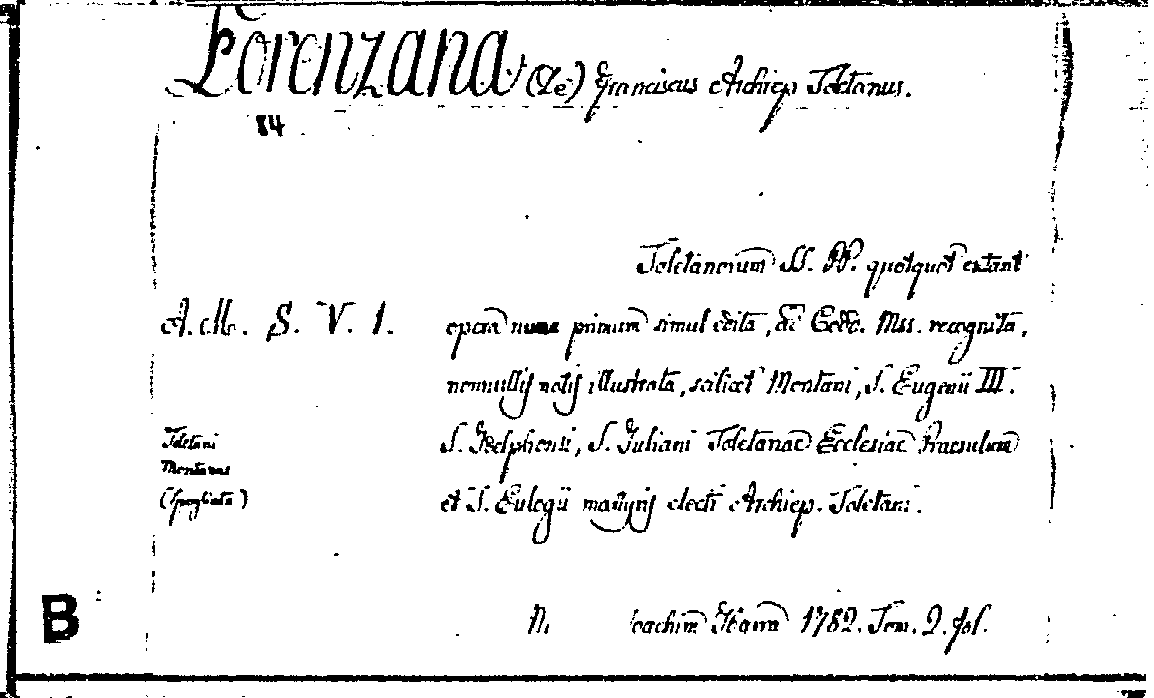 Lorenzana (De) Franciscus Archiep Toletanus.
84
Toletanorum SS. PP. quotquot extant
A. M. S. V. 1. opera nunc primum simul edita, ad Codd. Mss. recognita,
nonnullis notis illustrata, scilicet Montani, S. Eugenii III.
Toletani S. Ildephonsi, S. Juliani Toletanae Ecclesiae Praesulum
Montanus
(spogliata) et S. Eulogii martyris electi Archiep. Toletani.
B
oachim Ibarra 1782. Tom. 2. fol.